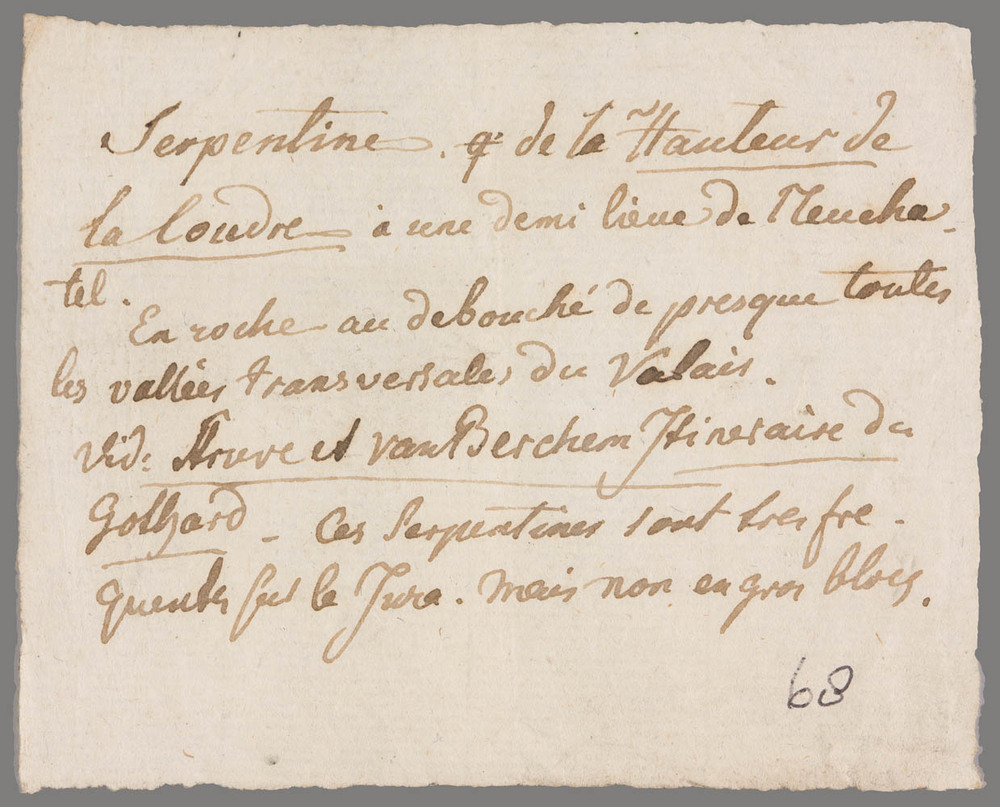 Serpentine. de la Hauteur de
la Coudre à une demi lieue de Neucha-
tel.
En roche au debouché de presque toutes
les vallées transversales du Valais.
Vid: Struve et van Berchem Itineraire du
Gothard - Ces Serpentines sont tres fre-
quentes sur le Jura. mais non en gros blocs.
68